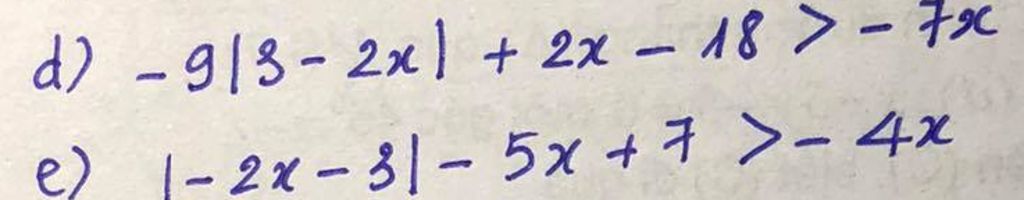 d) -9|3-2x| + 2x - 18 > - 7x
e) |-2x-3| - 5x + 7 > - 4x